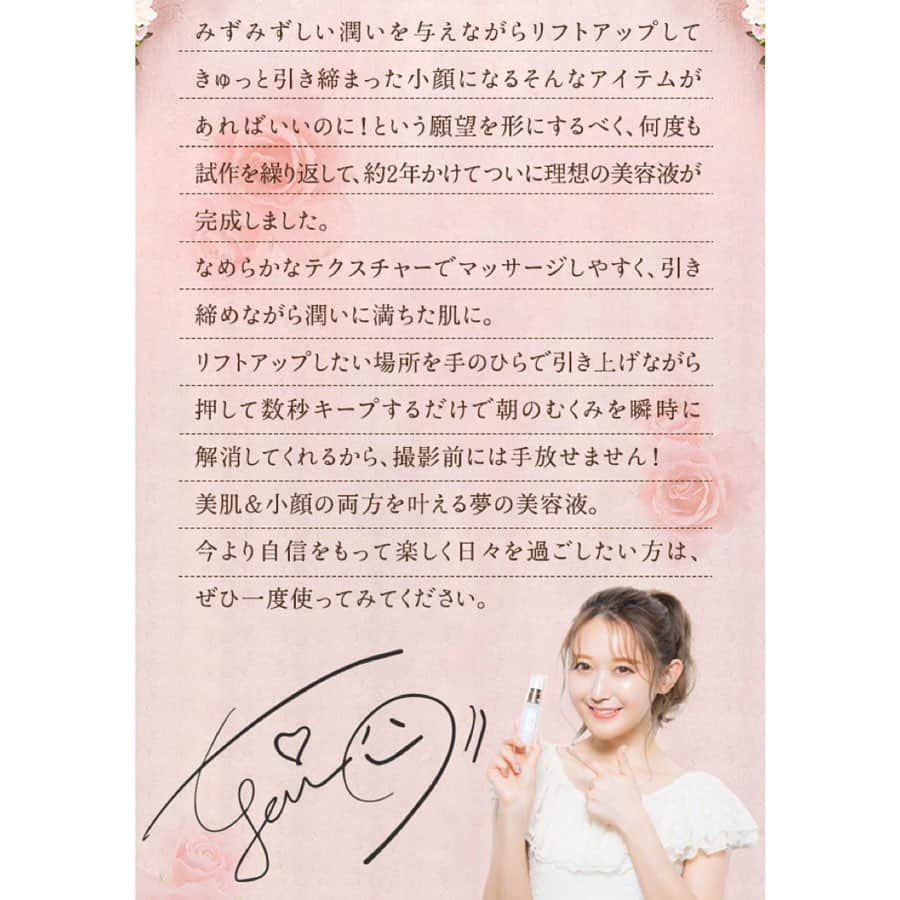 みずみずしい潤いを与えながらリフトアップして
きゅっと引き締まった小顔になるそんなアイテムが
あればいいのに！という願望を形にするべく、何度も
試作を繰り返して、約2年かけてついに理想の美容液が
完成しました。
なめらかなテクスチャーでマッサージしやすく、引き
締めながら潤いに満ちた肌に。
リフトアップしたい場所を手のひらで引き上げながら
押して数秒キープするだけで朝のむくみを瞬時に
解消してくれるから、撮影前には手放せません！
美肌＆小顔の両方を叶える夢の美容液。
今より自信をもって楽しく日々を過ごしたい方は、
ぜひ一度使ってみてください。